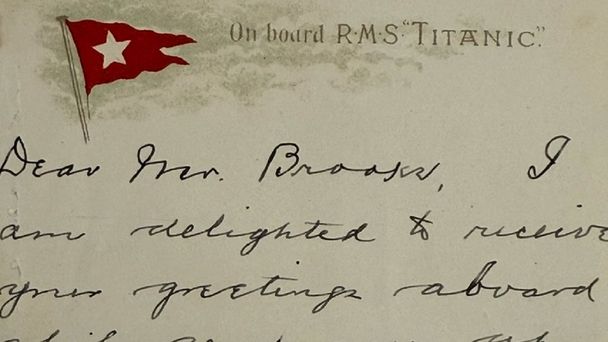 On board R·M·S·"TITANIC".
Dear Mr. Brooks, I
am delighted to receive
your greetings aboard